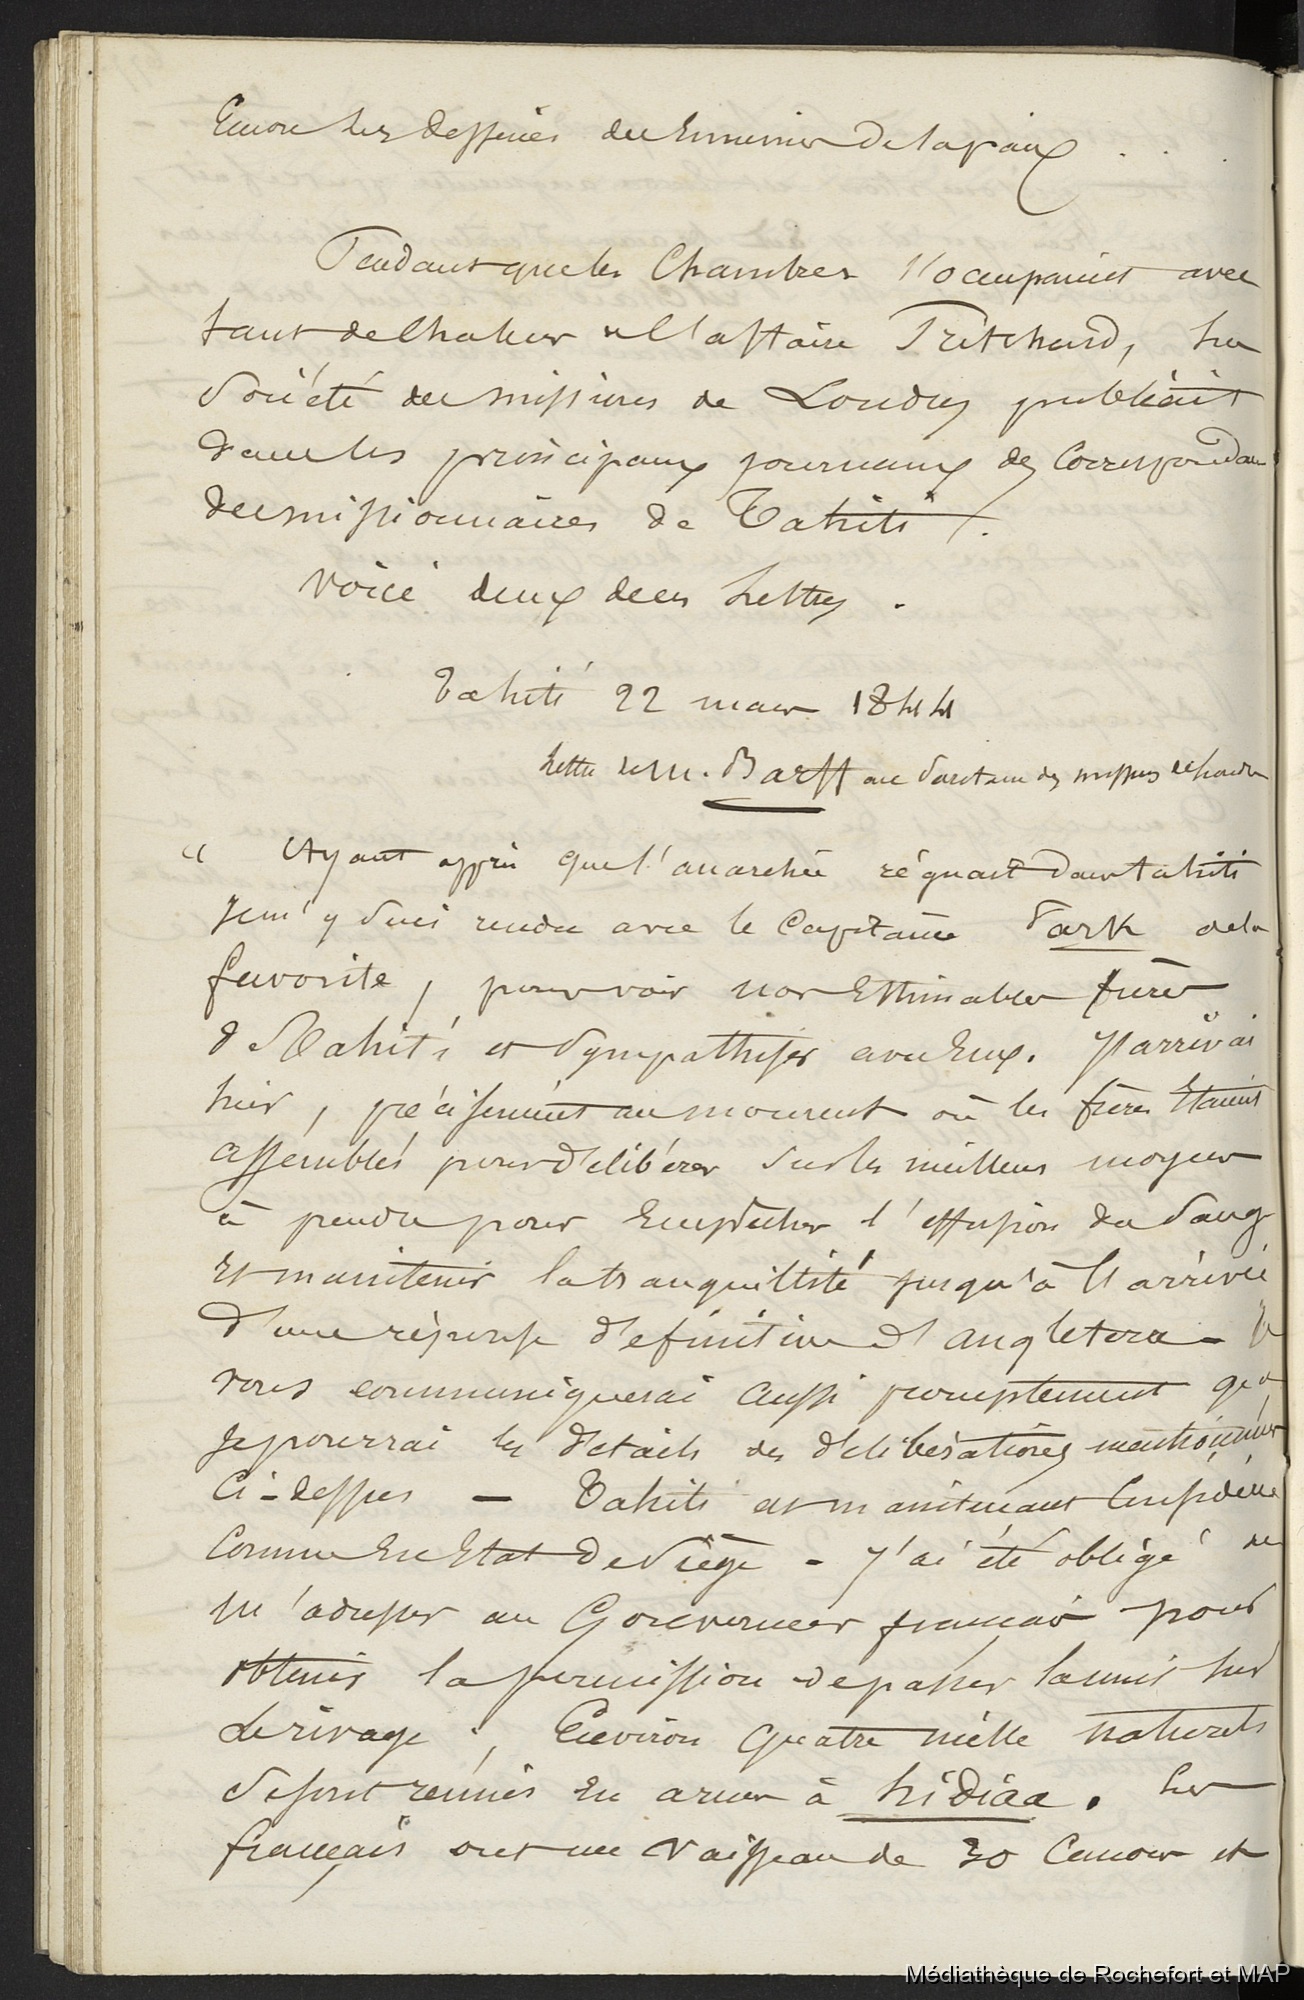 Encore les desseins des Ennemis de la paix . . .
Pendant que les Chambres s'occupaient avec
tant de Chaleur de l'affaire Pritchard, La
Société des missions de Londres publiait
dans les principaux journaux des Correspondan
des missionnaires de Tahiti.
Voici deux de ces Lettres.
Tahiti 22 mars 1844
Lettre de M. Barff aux des missions de Londres
" Ayant appris que l'anarchie régnait dans Tahiti
je m'y suis rendu avec le Capitaine Park de la
favorite, pour voir nos Estimables frères
de Tahiti et sympathiser avec Eux. J'arrivai
hier, précisément au moment où les frères Etaient
assemblés pour délibérer sur les meilleurs moyens
à prendre pour Empêcher l'effusion du Sang
et maintenir la tranquillité jusqu'à l'arrivée
d'une réponse définitive d'angleterre - Je
vous communiquerai aussi promptement que
je pourrai les détails des délibérations mentionnées
Ci-dessus — Tahiti est maintenant Considéré
Comme En Etat de Siège - J'ai été obligé de
m'adresser au Gouverneur français pour
obtenir la permission de passer la nuit sur
Le rivage ; Environ quatre mille naturels
se sont réunis En armes à hidiaa. Les
français ont un Vaisseau de 30 Canons et
Médiathèque de Rochefort et MAP